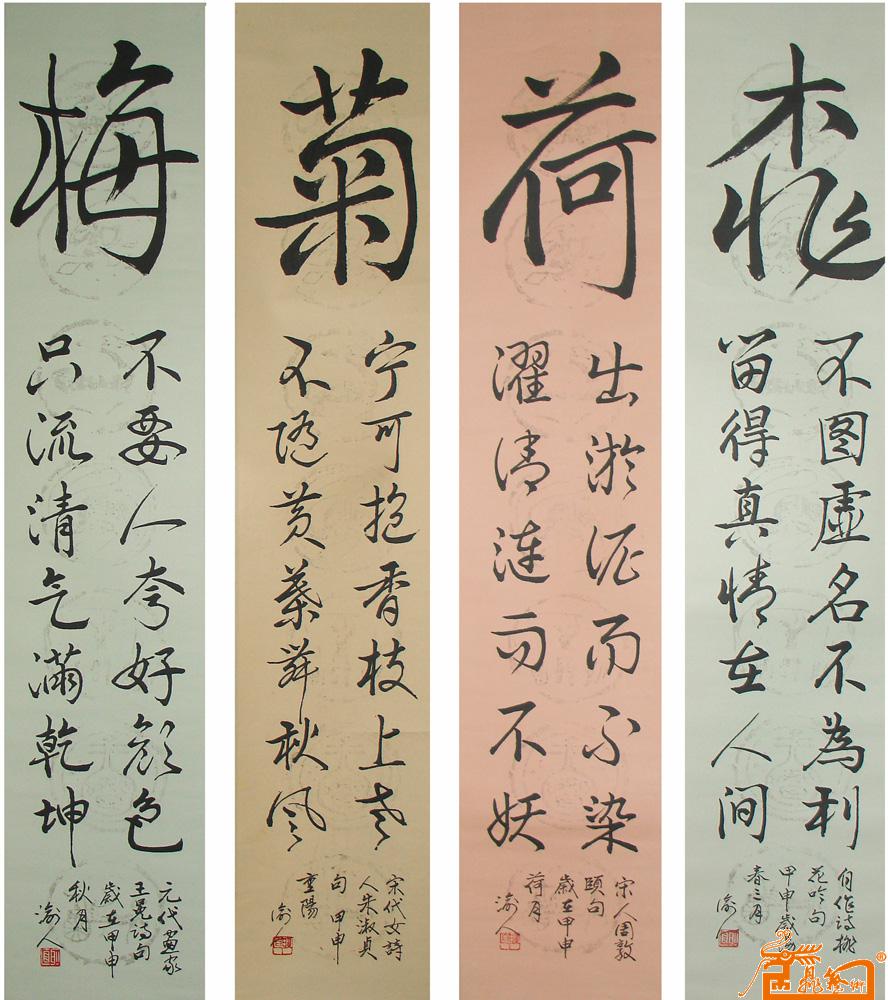 桃
不图虚名不為利
留得真情在人间
自作诗桃
花吟句
甲申歲
春三月
渝人
荷
出淤泥而不染
濯清涟而不妖
宋人周敦
颐句
歲在甲申
荷月
渝人
菊
宁可抱香枝上老
不随黄葉舞秋风
宋代女詩
人朱淑貞
句 甲申
重陽
渝
梅
不要人夸好颜色
只流清气满乾坤
元代画家
王冕诗句
歲在甲申
秋月
渝人